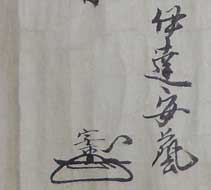 伊達安藝